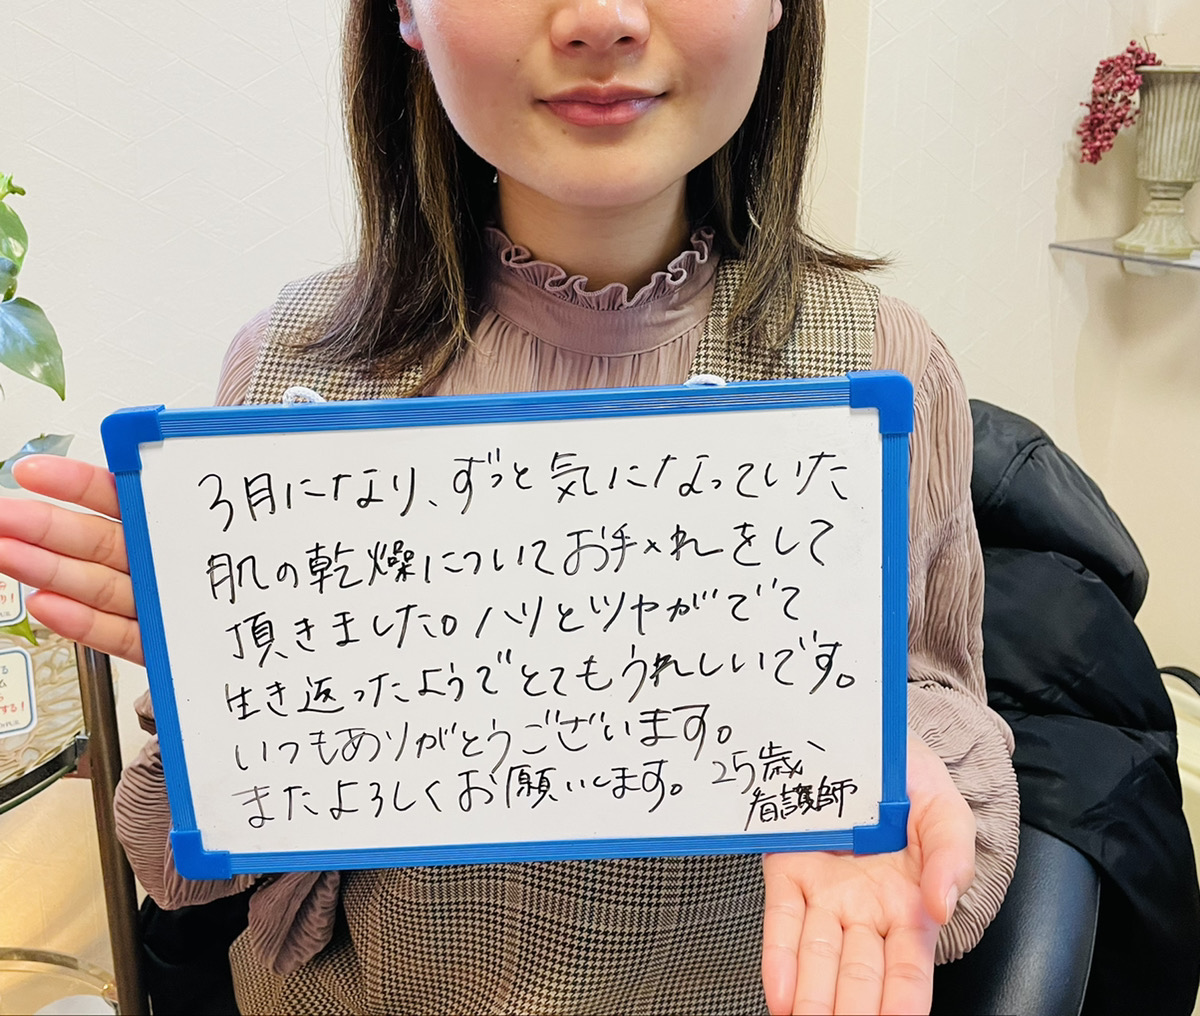 3月になり、ずっと気になっていた
肌の乾燥についてお手入れをして
頂きました。ハリとツヤがでて
生き返ったようでとてもうれしいです。
いつもありがとうございます。
またよろしくお願いします。25歳、
看護師